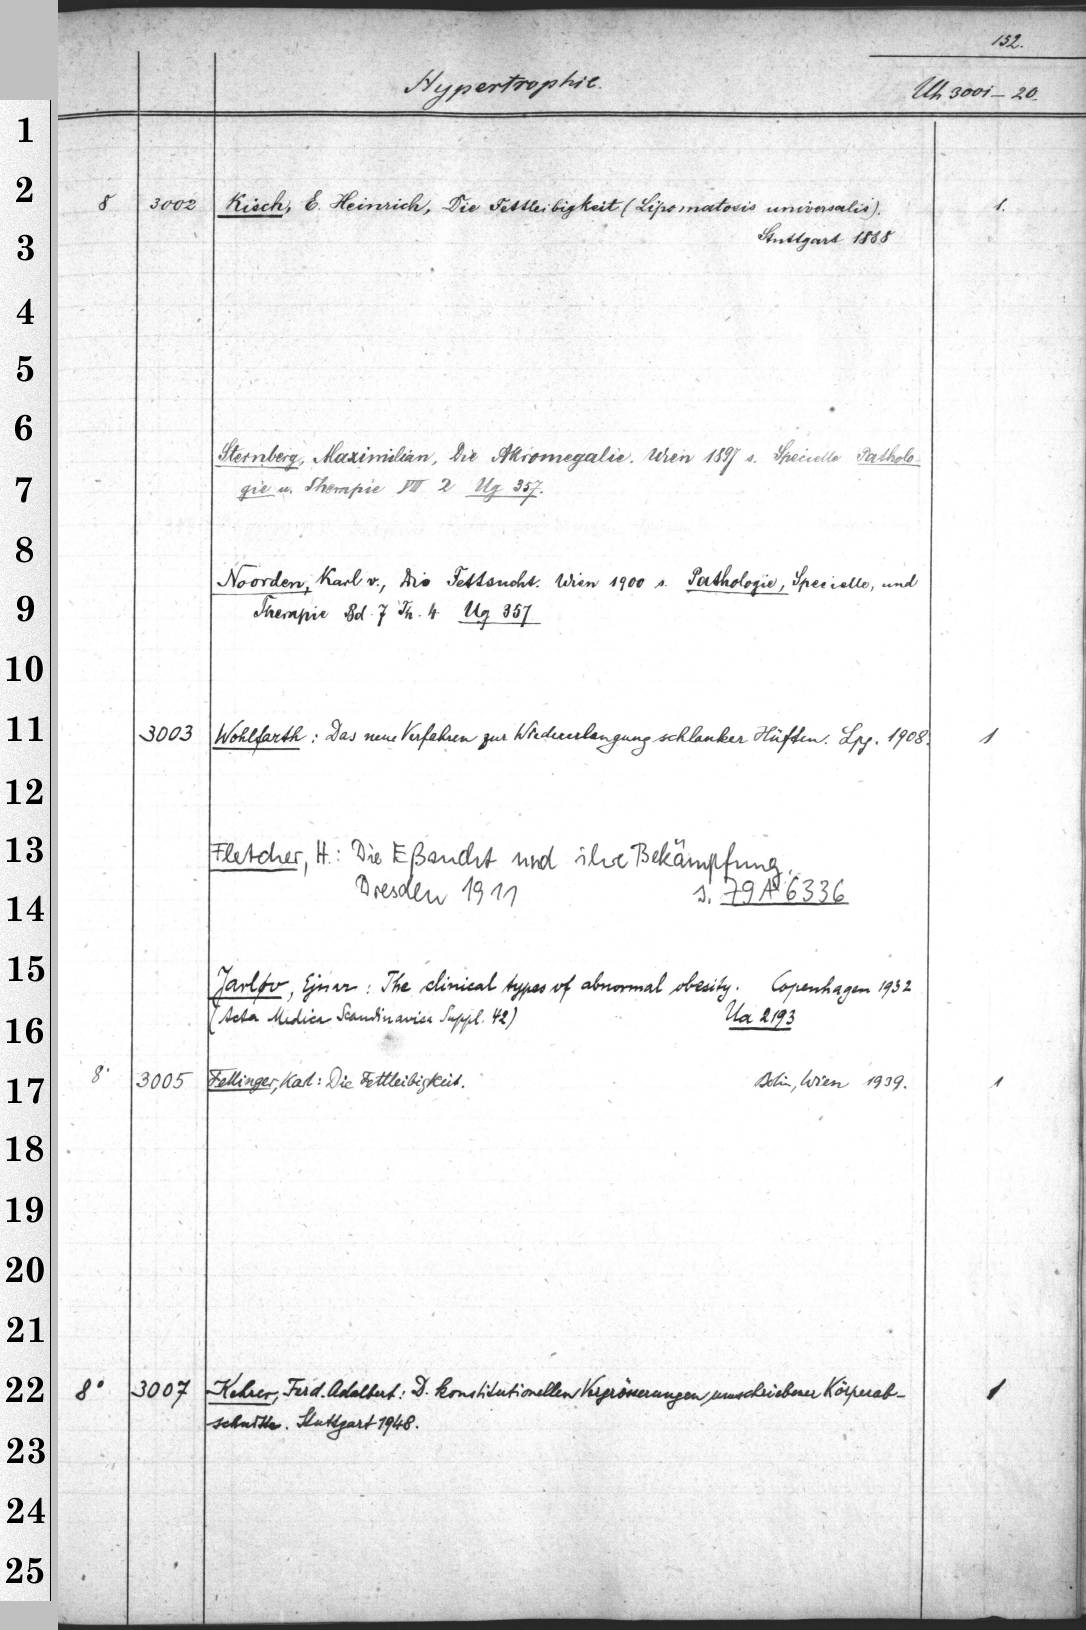 152.
Hypertrophie. Uh 3001-20.
1
2
8 3002 Kisch, E. Heinrich, Die Fettleibigkeit (Lipomatosis universalis). 1.
3
Stuttgart 1888
4
5
6
Sternberg, Maximilian, Die Akromegalie. Wien 1897 s. Specielle Patholo-
7
gie u. Therapie VII 2 Ug 357.
8
Noorden, Karl v., Die Fettsucht. Wien 1900 s. Pathologie, Specielle, und
9
Therapie Bd. 7 Th. 4 Ug 357
10
11
3003 Wohlfarth: Das neue Verfahren zur Wiedererlangung schlanker Hüften. Lpg. 1908. 1
12
13
Fletcher, H.: Die Eßsucht und ihre Bekämpfung.
14
Dresden 1911 s. 79 A 6336
15
Jarløv, Ejnar: The clinical types of abnormal obesity. Copenhagen 1932
16
(Acta Medica Scandinavica Suppl. 42) Ua 2193
17
8° 3005 Fellinger, Karl: Die Fettleibigkeit. Bln, Wien 1939. 1
18
19
20
21
22
8° 3007 Kehrer, Ferd. Adalbert: D. konstitutionellen Vergrösserungen umschriebener Körperab-
schnitte. Stuttgart 1948. 1
23
24
25